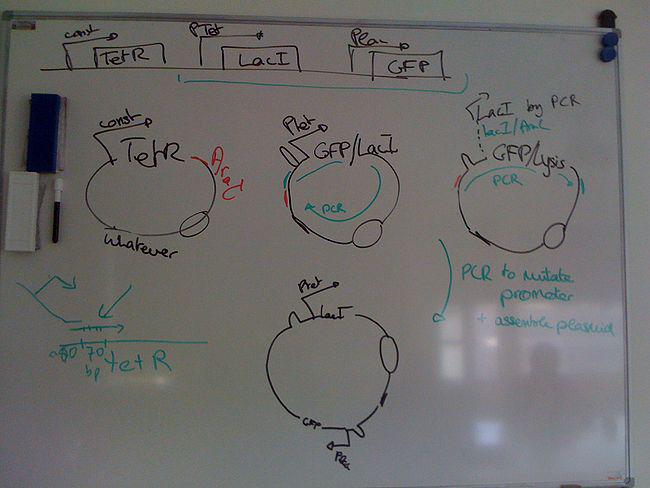 const
TetR
PTet
LacI
Plac
GFP
const
TetR
AraC
Whatever
Ptet
GFP/LacI
PCR
LacI by PCR
LacI/AraC
GFP/Lysis
PCR
PCR to mutate
promoter
+ assemble plasmid
70
bp
tetR
Ptet
LacI
GFP
Plac